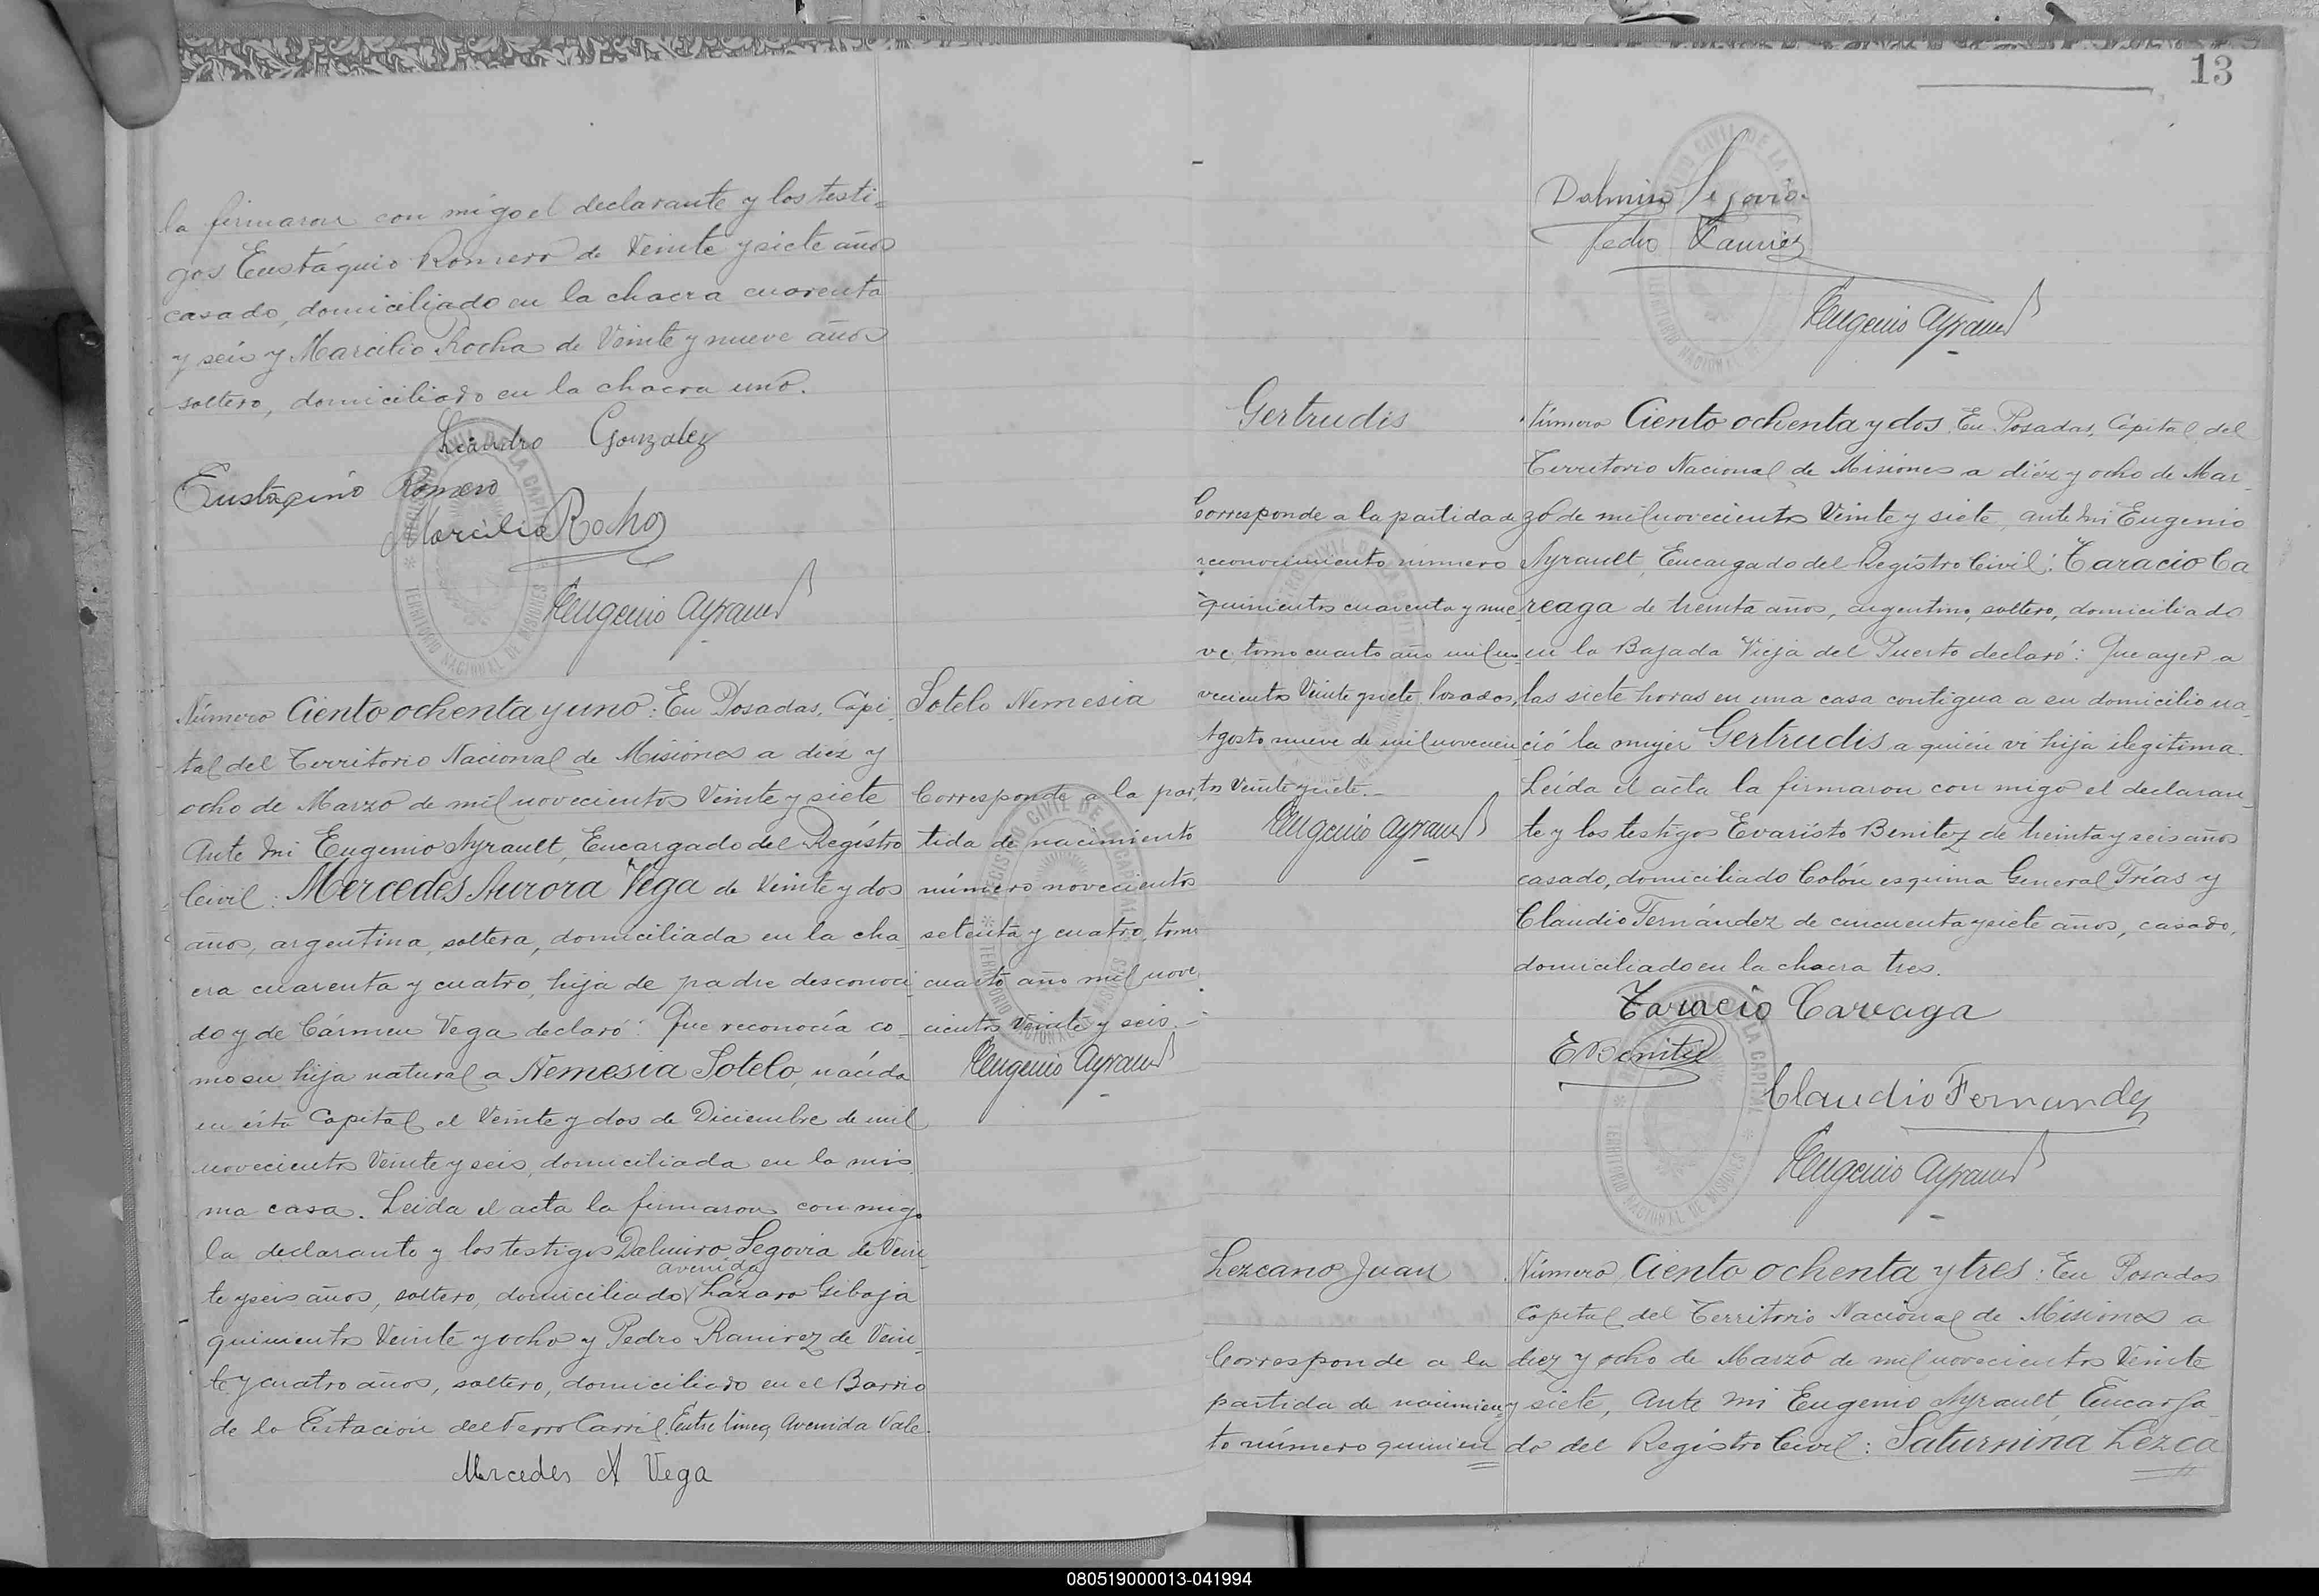 la firmaron con migo el declarante y los testi=
gos Eustáquio Romero de Veinte y siete años
casado, domiciliado en la chacra cuarenta
y seis y Marcilio Rocha de Veinte y nueve años
soltero, domiciliado en la chacra uno.
Leandro Gonzalez
Eustaquio Romero
Marcilio Rocha
Eugenio Ayrault
Número Ciento ochenta y uno: En Posadas, Capi-
tal del Territorio Nacional de Misiones a diez y
ocho de Marzo de mil novecientos Veinte y siete
Ante mi Eugenio Ayrault, Encargado del Registro
Civil: Mercedes Aurora Vega de Veinte y dos
años, argentina, soltera, domiciliada en la cha-
cra cuarenta y cuatro, hija de padre desconoci-
do y de Cármen Vega declaró: Que reconocía co-
mo su hija natural a Nemesia Sotelo, nacida
en ésta Capital el Veinte y dos de Diciembre de mil
novecientos Veinte y seis, domiciliada en la mis-
ma casa. Leida el acta la firmaron con migo
la declarante y los testigos Dalmiro Segovia de Vein-
avenida
te y seis años, soltero, domiciliado Lázaro Gibaja
quinientos Veinte y ocho y Pedro Ramirez de Vein-
te y cuatro años, soltero, domiciliado en el Barrio
de la Estación del Ferro Carril. Entre linea, Avenida Vale.
Mercedes A Vega
Sotelo Nemesia
Corresponde a la par-
tida de nacimiento
número novecientos
setenta y cuatro, tomo
cuarto año mil nove-
cientos Veinte y seis.-
Eugenio Ayrault
13
Dalmiro Segovia
Pedro Ramirez
Eugenio Ayrault
Gertrudis
Corresponde a la partida de
reconocimiento número
quinientos cuarenta y nue-
ve, tomo cuarto año mil no-
vecientos Veinte y siete. Posadas,
Agosto nueve de mil novecien-
tos Veinte y siete.-
Eugenio Ayrault
Número Ciento ochenta y dos En Posadas, Capital del
Territorio Nacional de Misiones a diéz y ocho de Mar-
zo de mil novecientos Veinte y siete, ante mi Eugenio
Ayrault, Encargado del Registro Civil: Taracio Ca
reaga de treinta años, argentino, soltero, domiciliado
en la Bajada Vieja del Puerto declaró: Que ayer a
las siete horas en una casa contigua a su domicilio na-
ció la mujer Gertrudis a quien vi hija ilegitima.
Leída el acta la firmaron con migo el declaran-
te y los testigos Evaristo Benitez de treinta y seis años
casado, domiciliado Colón esquina General Frías y
Claudio Fernández de cincuenta y siete años, casado,
domiciliado en la chacra tres.
Taracio Careaga
E Benitez
Claudio Fernandez
Eugenio Ayrault
Lezcano Juan
Corresponde a la
partida de nacimien-
to número quinien
Número Ciento ochenta y tres: En Posadas
Capital del Territorio Nacional de Misiones a
diez y ocho de Marzo de mil novecientos Veinte
y siete, Ante mi Eugenio Ayrault, Encarga-
do del Registro Civil: Saturnina Lezca
080519000013-041994